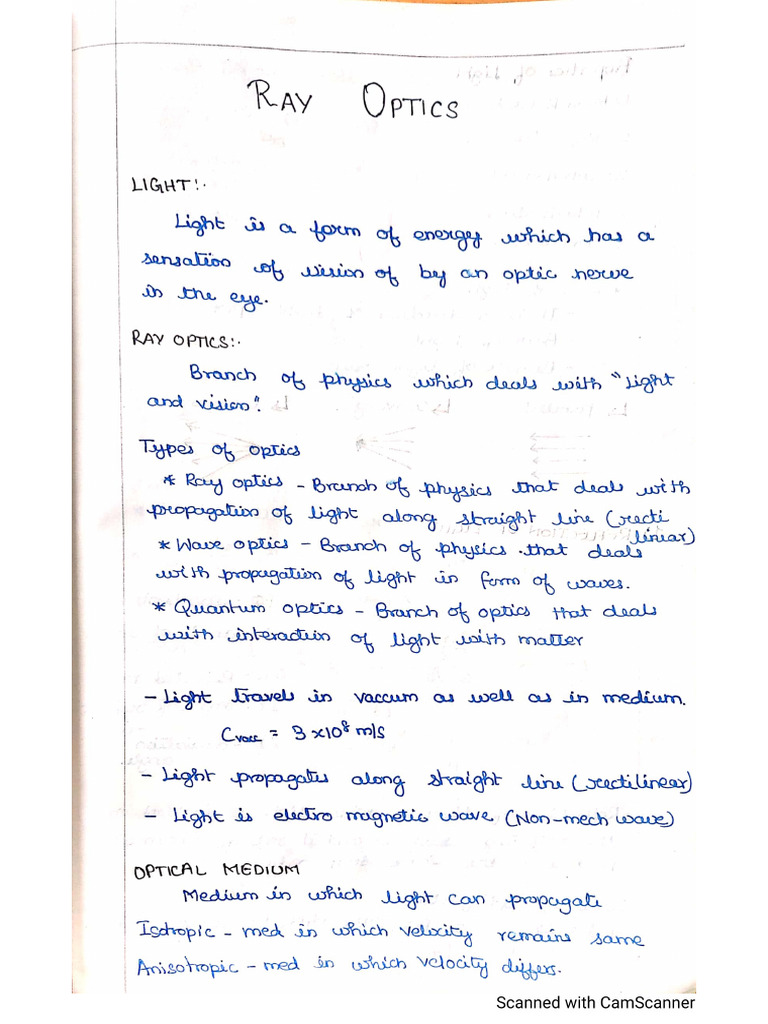 RAY OPTICS
LIGHT:-
Light is a form of energy which has a
sensation of vision of by an optic nerve
in the eye.
RAY OPTICS:-
Branch of physics which deals with "light
and vision".
Types of optics
* Ray optics - Branch of physics that deals with
propagation of light along straight line (recti
linear)
* Wave optics - Branch of physics that deals
with propagation of light in form of waves.
* Quantum optics - Branch of optics that deals
with interaction of light with matter
- Light travels in vaccum as well as in medium.
Cvacc = 3 x 10⁸ m/s
- Light propagates along straight line (rectilinear)
- Light is electro magnetic wave (Non-mech wave)
OPTICAL MEDIUM
Medium in which light can propagate
Isotropic - med in which velocity remains same
Anisotropic - med in which velocity differs.
Scanned with CamScanner